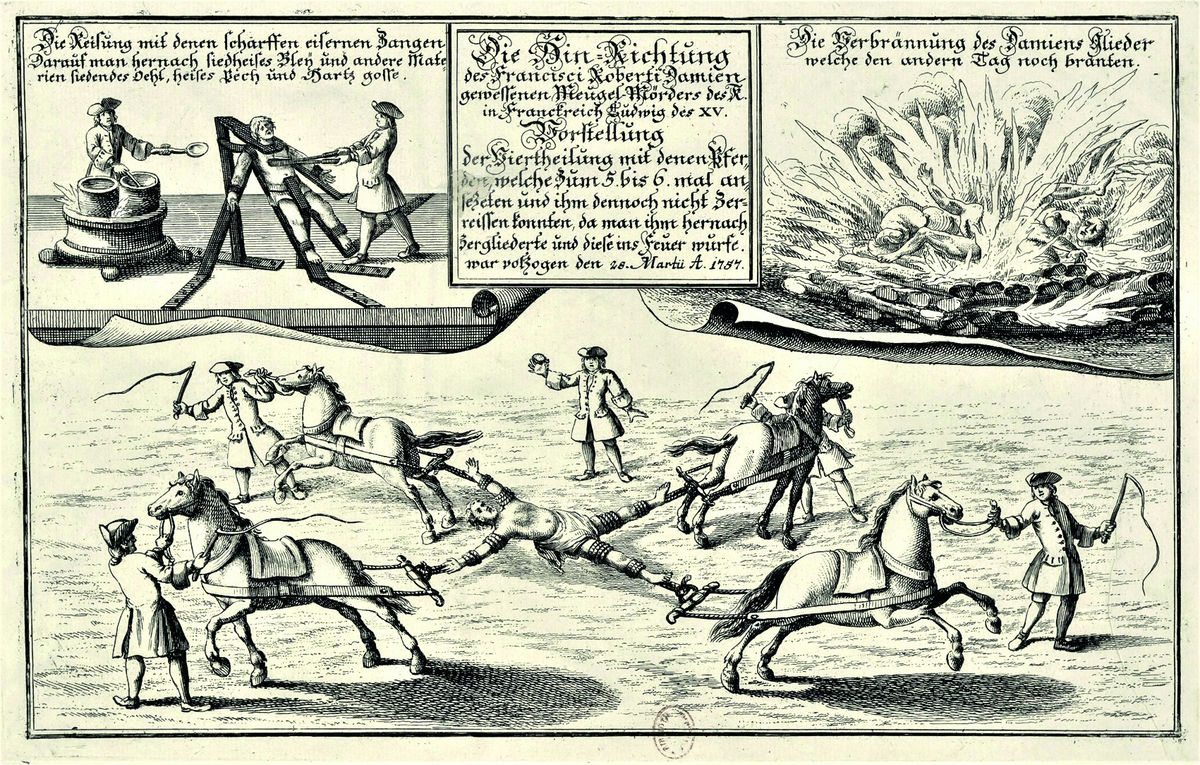 Die Reisung mit denen schärffen eisernen Zangen
Darauf man hernach siedheises Bley und andere Mate-
rien siedendes Oehl, heises Pech und Hartz gosse.
Die Hin-Richtung
des Francisci Roberti Damien
gewessenen Meugel-Mörders des K.
in Franckreich Ludwig des XV.
Vorstellung
der Viertheilung mit denen Pfer
den, welche zum 5. bis 6. mal an
sezeten und ihm dennoch nicht Zer-
reissen konnten, da man ihm hernach
zergliederte und diese ins Feuer wurfe.
war volzogen den 28. Martii A. 1757.
Die Verbrännung des Damiens Glieder
welche den andern Tag noch branten.